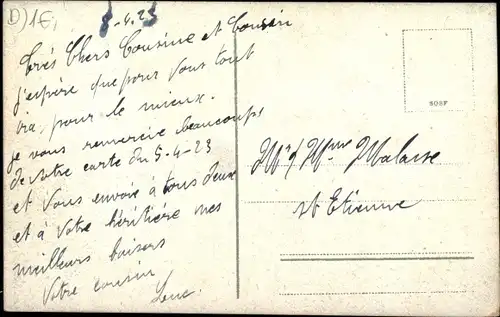 D) 1€,
8-4.23
Très Chers Cousine et Cousin
j'espère que pour vous tout
ira pour le mieux.
je vous remercie beaucoups
de votre carte du 5-4-23
et vous envoie à tous deux
et à votre héritière mes
meilleurs baisers
Votre cousin
Luc.
SOEF
Mr & Mme Malaise
St Etienne